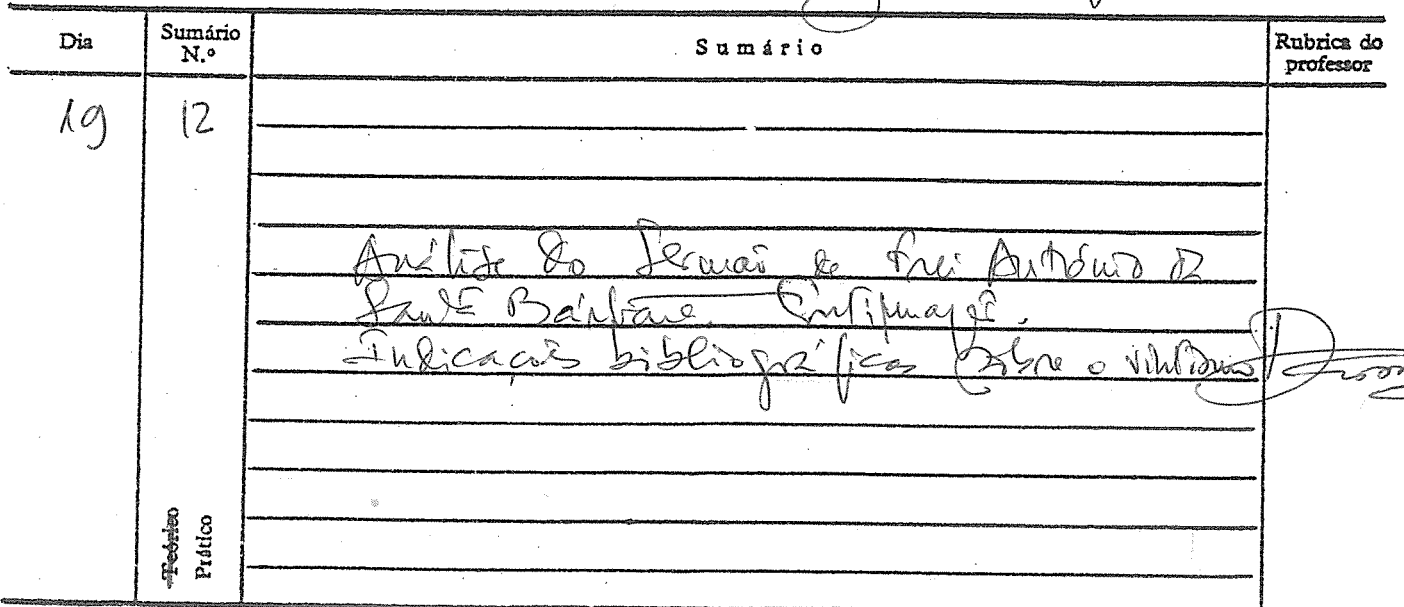 Dia
Sumário N.º
Sumário
Rubrica do professor
19
12
Análise do Sermão de Frei António de
Santa Bárbara. Continuação.
Indicações bibliográficas sobre o vintismo
Teórico
Prático